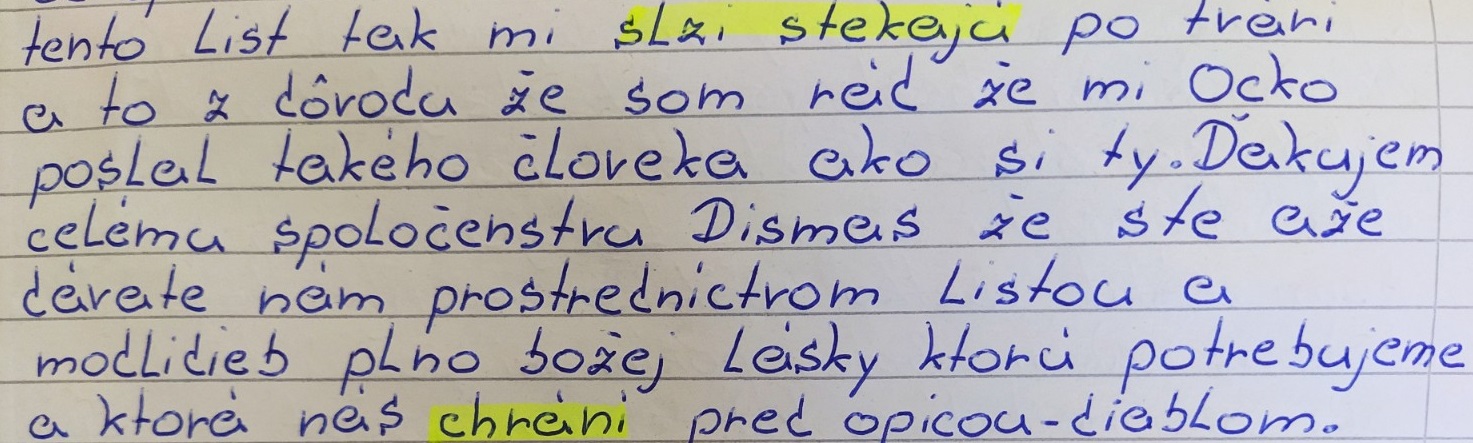 tento List tak mi slzi stekajú po tvári
a to z dôvodu že som rád že mi Ocko
poslal takého človeka ako si ty. Ďakujem
celému spoločenstvu Dismas že ste a že
dávate nám prostredníctvom Listou a
modlidieb plno božej Lásky ktorú potrebujeme
a ktorá nás chráni pred opicou-diablom.